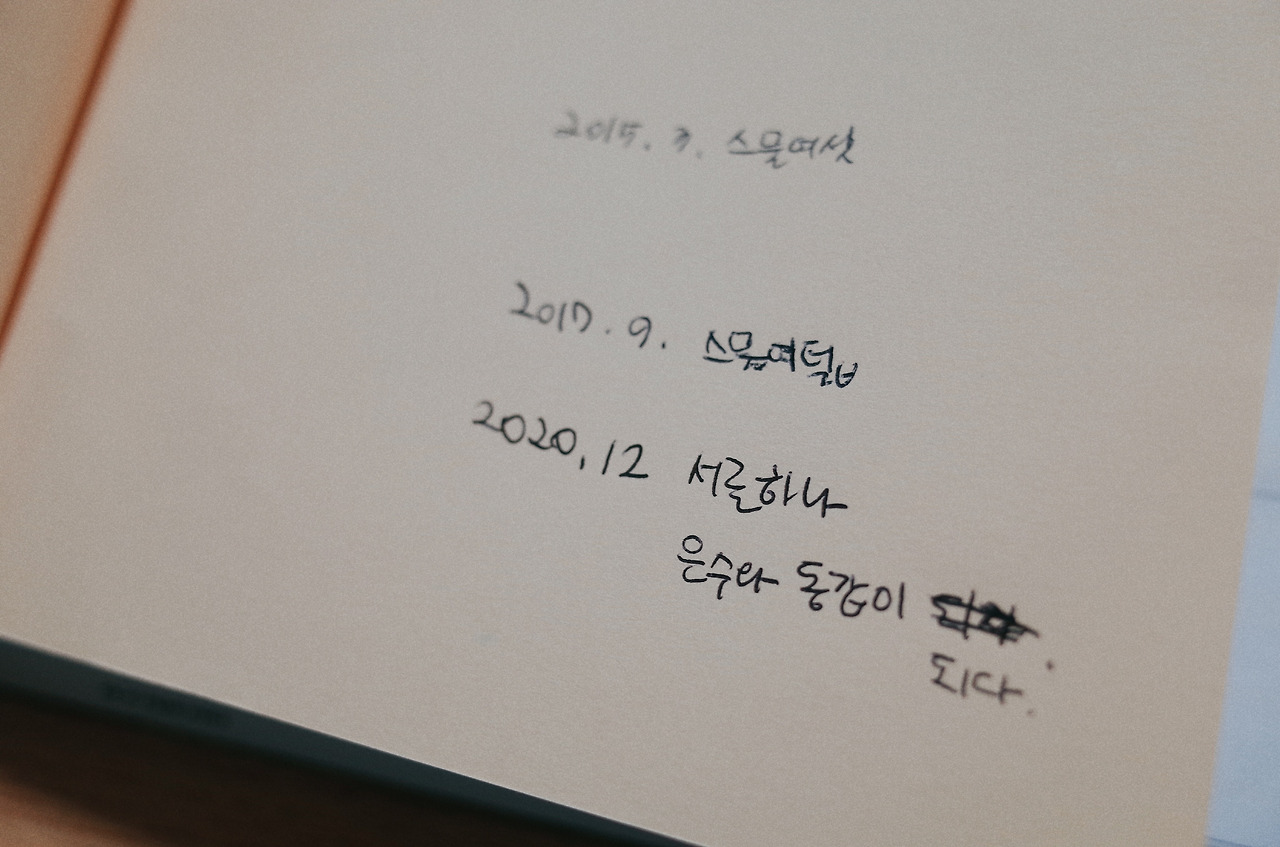 2015. 3. 스물여섯
2017. 9. 스물여덟
2020. 12 서른하나
은수와 동갑이
되다.